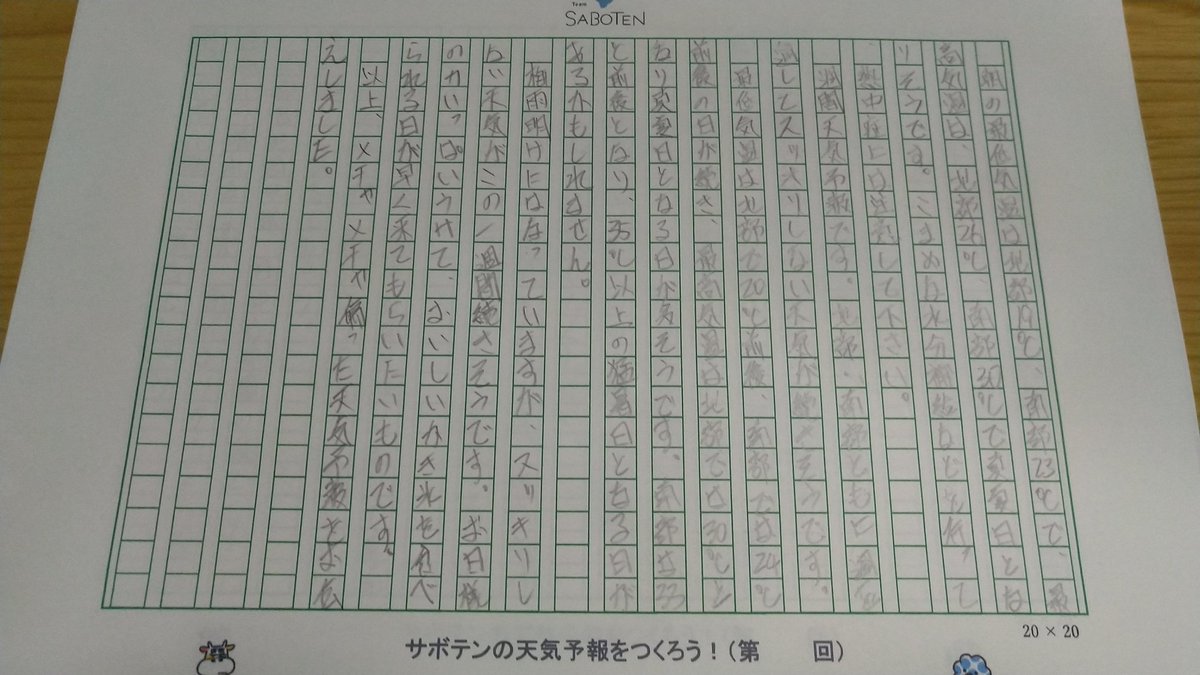 Team
SABOTEN
朝の最低気温は北部19℃、南部23℃で、最
高気温は、北部26℃、南部30℃で真夏日とな
りそうです。こまめな水分補給などを行って
、熱中症には注意して下さい。
週間天気予報です。北部、南部ともに週を
通してスッキリしない天気が続きそうです。
最低気温は北部で20℃前後、南部では24℃
前後の日が続き、最高気温は北部では30℃と
なり真夏日となる日が多そうです。南部は33
と前後となり、35℃以上の猛暑日となる日が
あるかもしれません。
梅雨明けにはなっていますが、スッキリし
ない天気がこの一週間続きそうです。お日様
の力いっぱいうけて、おいしいかき氷を食べ
られる日が早く来てもらいたいものです。
以上、メチャメチャ偏った天気予報をお伝
えしました。
20 × 20
サボテンの天気予報をつくろう！（第　　回）